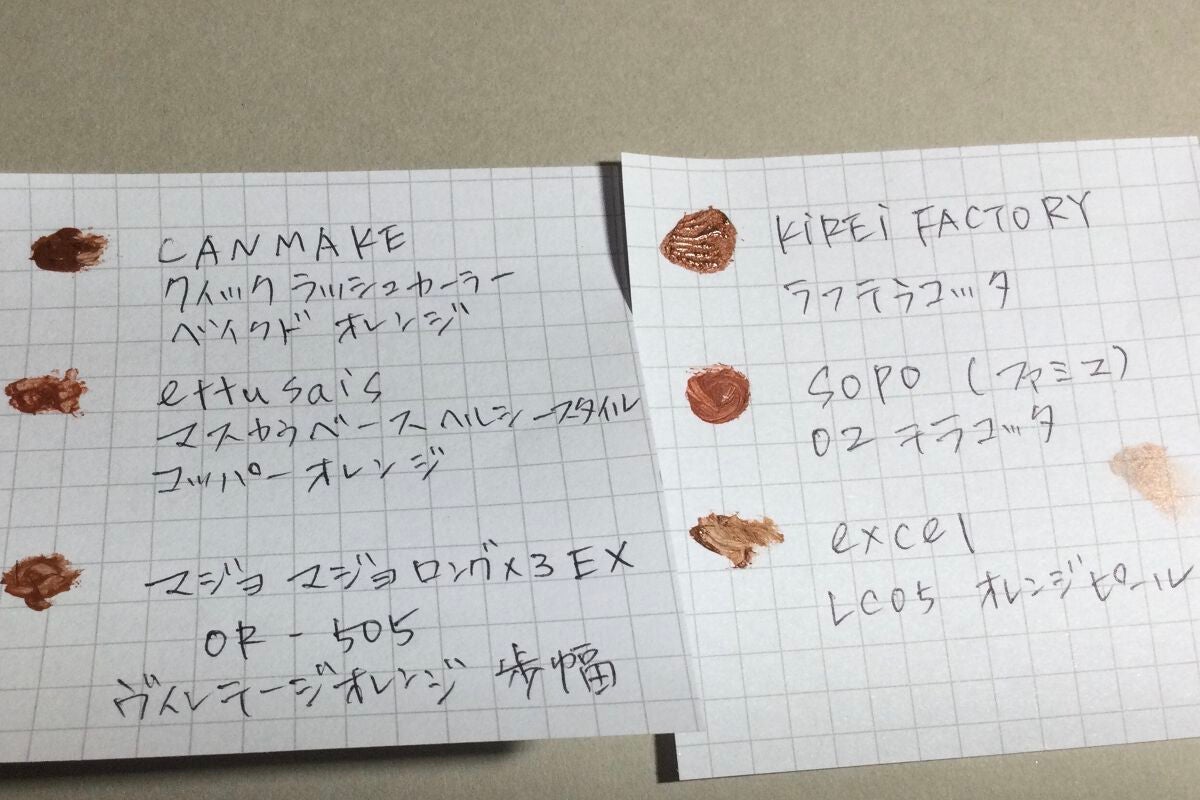 CANMAKE
クイックラッシュカーラー
ベイクドオレンジ
ettusais
マスカラベース ヘルシースタイル
コッパーオレンジ
マジョマジョロング×3 EX
OR-505
ヴィンテージオレンジ 歩幅
KiREi FACTORY
ラフテラコッタ
SOPO (ファミマ)
02 テラコッタ
excel
LC05 オレンジピール